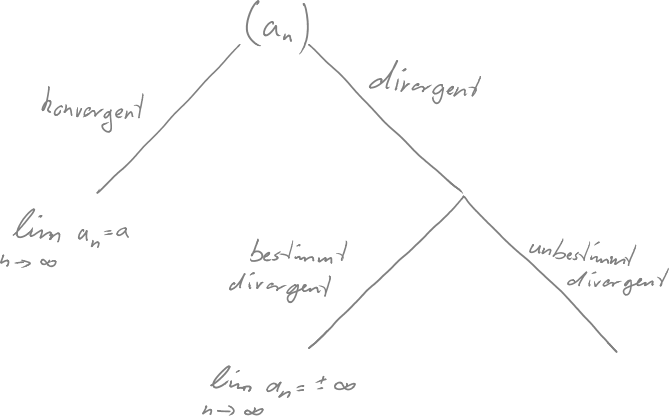 (aₙ)
divergent
konvergent
lim aₙ = a
n → ∞
bestimmt
divergent
unbestimmt
divergent
lim aₙ = ± ∞
n → ∞